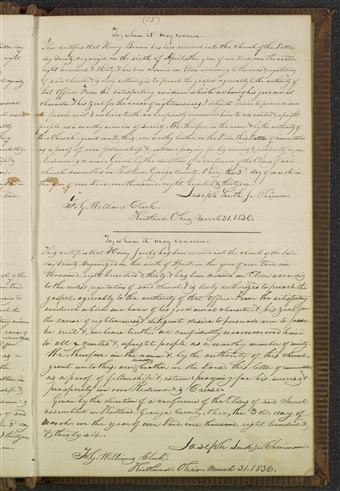 (13)
To, whom it may concern.
This certifies that Henry has been received into the church of the Latter
day Saints organized on the sixth of April the year of our Lord one thousand
eight hundred & thirty & has been ordained an Elder according to the rules & regulations
of said church & is duly authorized to preach the gospel agreeably to the authority of
that Office. From the satisfactory evidence which we have of his good moral
character & his zeal for the cause of righteousness & diligent desire to persuade men
to forsake evil & embrace truth, we confidently recommend him to all candid & upright
people as a worthy member of society. We therefore, in the name & by the authority of
this Church grant unto this, our worthy brother in the Lord, this letter of commendation
as a proof of our fellowship & esteem: praying for his success & prosperity in our
Redeemer's cause. Given by the direction of a conference of the Elders of said
church assembled in Kirtland, Geauga County, Ohio, the 3d day of March in
the year of our Lord one thousand eight hundred & thirty six.
Joseph Smith Jr. Chairman
F. G. Williams Clerk.
Kirtland, Ohio, March 31. 1836.
To, whom it may concern:
This certifies that Henry has been received into the church of the Latter
day Saints, Organized on the sixth of April in the year of our Lord one
thousand, eight hundred & thirty & has been ordained an Elder according
to the rules & regulations of said church & is duly authorized to preach the
gospel, agreeably to the authority of that office. From the satisfactory
evidence which we have of his good moral character, & his zeal for
the cause of righteousness & diligent desire to persuade men to forsake
evil & embrace truth, we confidently recommend him
to all candid & upright people as a worthy member of society.
We, therefore, in the name & by the authority of this church
grant unto this, our brother in the Lord this letter of commendation
as a proof of fellowship & esteem: praying for his success &
prosperity in our Redeemer's Cause.
Given by the direction of a conference of the Elders of said church
assembled in Kirtland, Geauga County, Ohio, the 3d day of
March in the year of our Lord one thousand eight hundred
& thirty six.
Joseph Smith Jr Chairman
F. G. Williams Clerk.
Kirtland Ohio March 31, 1836.